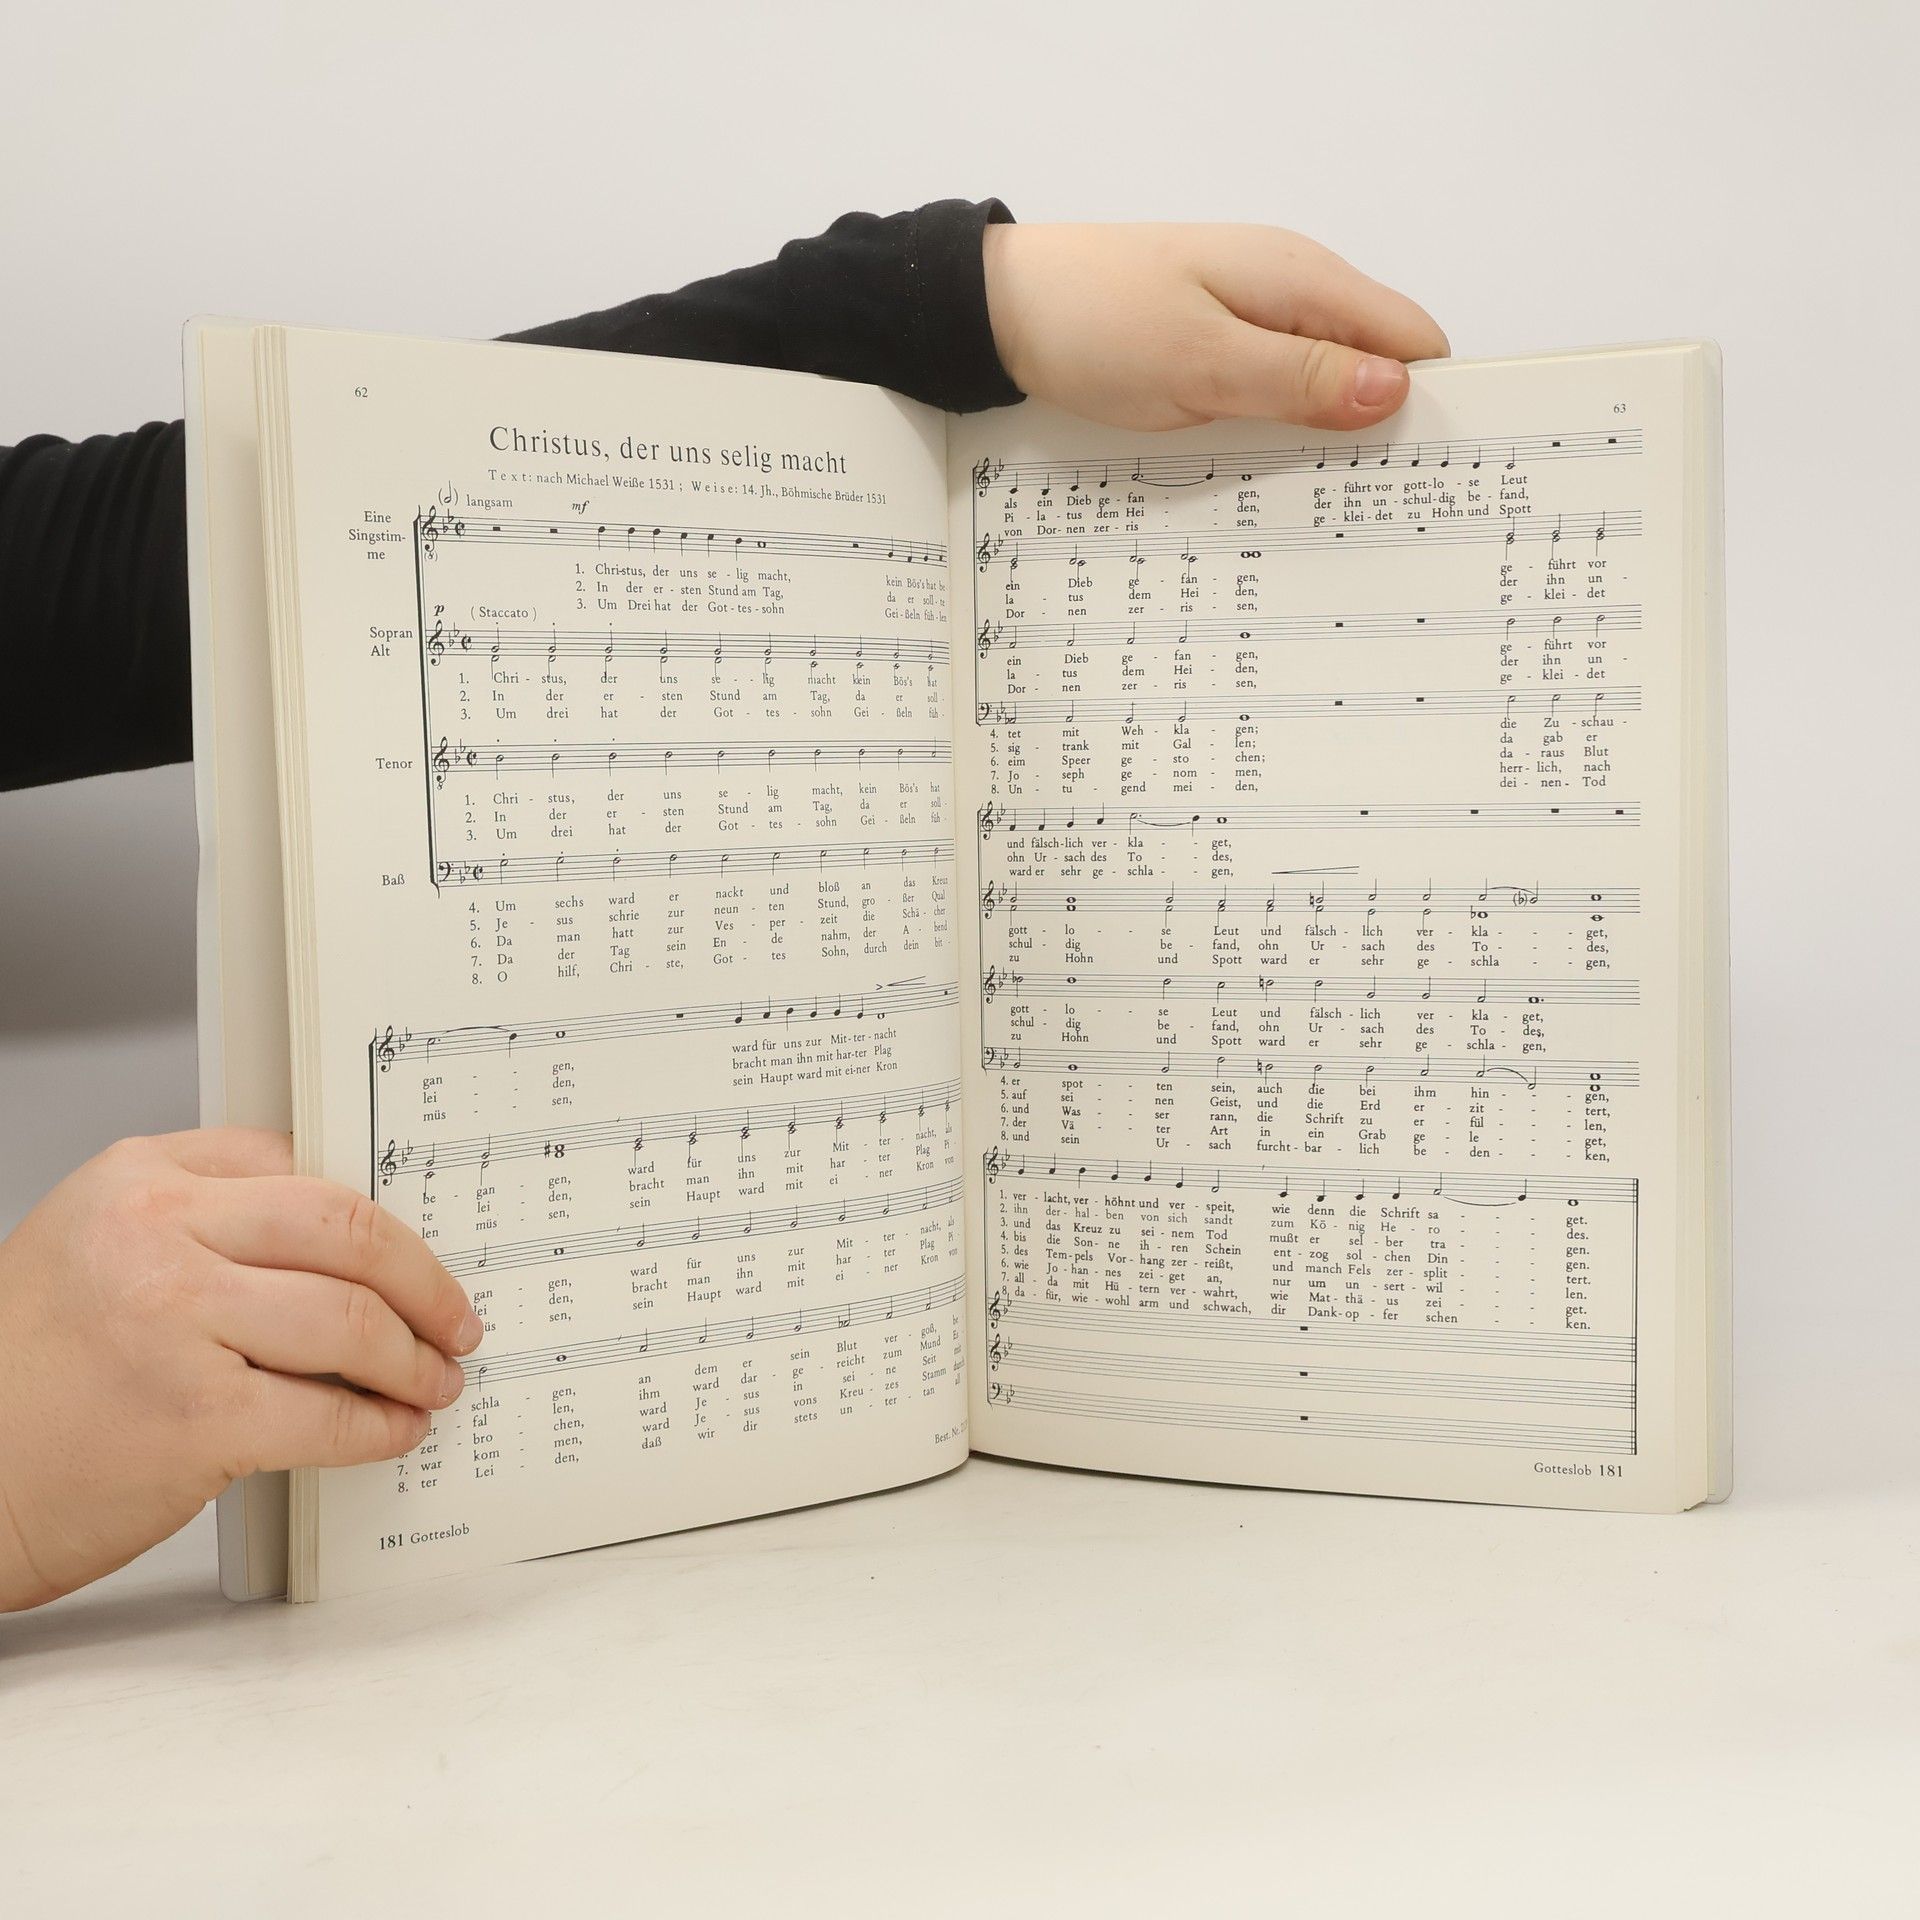 62
Christus, der uns selig macht
Text: nach Michael Weiße 1531 ; Weise: 14. Jh., Böhmische Brüder 1531
langsam
mf
Eine
Singstim-
me
1. Chri-stus, der uns se - lig macht, kein Bös's hat be-
2. In der er - sten Stund am Tag, da er soll - te
3. Um Drei hat der Got - tes - sohn Gei - ßeln füh - len
p
( Staccato )
Sopran
Alt
1. Chri - stus, der uns se - lig macht kein Bös's hat
2. In der er - sten Stund am Tag, da er soll -
3. Um drei hat der Got - tes - sohn Gei - ßeln füh -
Tenor
1. Chri - stus, der uns se - lig macht, kein Bös's hat
2. In der er - sten Stund am Tag, da er soll -
3. Um drei hat der Got - tes - sohn Gei - ßeln füh -
Baß
4. Um sechs ward er nackt und bloß an das Kreuz
5. Je - sus schrie zur neun - ten Stund, gro - ßer Qual
6. Da man hatt zur Ves - per - zeit die Schä - cher
7. Da der Tag sein En - de nahm, der A - bend
8. O hilf, Chri - ste, Got - tes Sohn, durch dein bit -
gan - - gen, ward für uns zur Mit - ter - nacht
lei - - den, bracht man ihn mit har-ter Plag
müs - - sen, sein Haupt ward mit ei-ner Kron
be - gan - gen, ward für uns zur Mit - ter - nacht, als
te lei - den, bracht man ihn mit har - ter Plag Pi -
len müs - sen, sein Haupt ward mit ei - ner Kron von
gan - gen, ward für uns zur Mit - ter - nacht, als
lei - den, bracht man ihn mit har - ter Plag Pi -
müs - sen, sein Haupt ward mit ei - ner Kron von
schla - gen, an dem er sein Blut ver - goß, be
fal - len, ihm ward dar - ge - reicht zum Mund
zer - bro - chen, ward Je - sus in sei - ne Seit mit
7. war kom - men, ward Je - sus vons Kreu - zes Stamm durch
8. ter Lei - den, daß wir dir stets un - ter - tan all
Best. Nr.
181 Gotteslob
63
als ein Dieb ge - fan - - gen, ge - führt vor gott-lo - se Leut
Pi - la - tus dem Hei - - den, der ihn un - schul-dig be - fand,
von Dor - nen zer - ris - - sen, ge - klei - det zu Hohn und Spott
ein Dieb ge - fan - gen, ge - führt vor
la - tus dem Hei - den, der ihn un -
Dor - nen zer - ris - sen, ge - klei - det
ein Dieb ge - fan - gen, ge - führt vor
la - tus dem Hei - den, der ihn un -
Dor - nen zer - ris - sen, ge - klei - det
4. tet mit Weh - kla - gen; die Zu - schau -
5. sig - trank mit Gal - len; da gab er
6. eim Speer ge - sto - chen; da - raus Blut
7. Jo - seph ge - nom - men, herr - lich, nach
8. Un - tu - gend mei - den, dei - nen - Tod
und fälsch-lich ver - kla - - get,
ohn Ur - sach des To - - des,
ward er sehr ge - schla - - gen,
gott - lo - - se Leut und fälsch - lich ver - kla - - - get,
schul - dig be - fand, ohn Ur - sach des To - - - des,
zu Hohn und Spott ward er sehr ge - schla - - - gen,
gott - lo - - se Leut und fälsch - lich ver - kla - get,
schul - dig be - fand, ohn Ur - sach des To - des,
zu Hohn und Spott ward er sehr ge - schla - gen,
4. er spot - - ten sein, auch die bei ihm hin - - - gen,
5. auf sei - - nen Geist, und die Erd er - zit - - - tert,
6. und Was - - ser rann, die Schrift zu er - fül - - - len,
7. der Vä - - ter Art in ein Grab ge - le - - - get,
8. und sein Ur - sach furcht - bar - lich be - den - - - ken,
1. ver - lacht, ver - höhnt und ver - speit, wie denn die Schrift sa - - - get.
2. ihn der - hal - ben von sich sandt zum Kö - nig He - ro - - - des.
3. und das Kreuz zu sei - nem Tod mußt er sel - ber tra - - - gen.
4. bis die Son - ne ih - ren Schein ent - zog sol - chen Din - - - gen.
5. des Tem - pels Vor - hang zer - reißt, und manch Fels zer - split - - - tert.
6. wie Jo - han - nes zei - get an, nur um un - sert - wil - - - len.
7. all - da mit Hü - tern ver - wahrt, wie Mat - thä - us zei - - - get.
8. da - für, wie - wohl arm und schwach, dir Dank - op - fer schen - - - ken.
Gotteslob 181